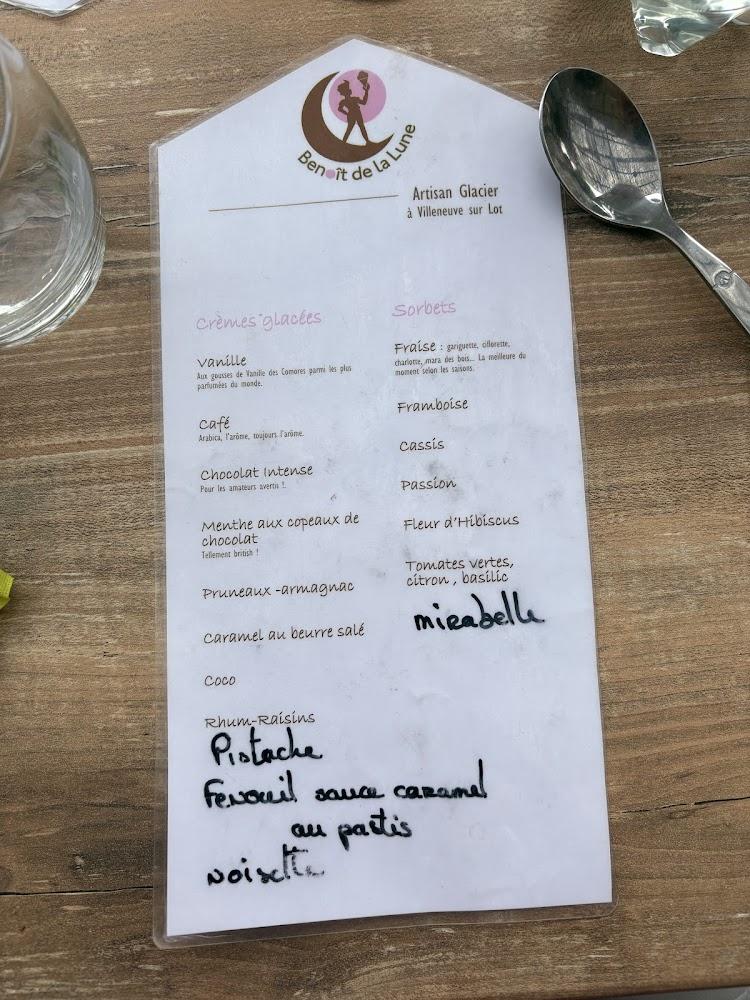 Benoît de la Lune
Artisan Glacier
à Villeneuve sur Lot
Crèmes glacées
Vanille
Aux gousses de Vanille des Comores parmi les plus
parfumées du monde.
Café
Arabica, l'arôme, toujours l'arôme.
Chocolat Intense
Pour les amateurs avertis !.
Menthe aux copeaux de
chocolat
Tellement british !
Pruneaux -armagnac
Caramel au beurre salé
Coco
Rhum-Raisins
Pistache
Fenouil sauce caramel
au pastis
noisette
Sorbets
Fraise : gariguette, ciflorette,
charlotte, mara des bois... La meilleure du
moment selon les saisons.
Framboise
Cassis
Passion
Fleur d'Hibiscus
Tomates vertes,
citron , basilic
mirabelle